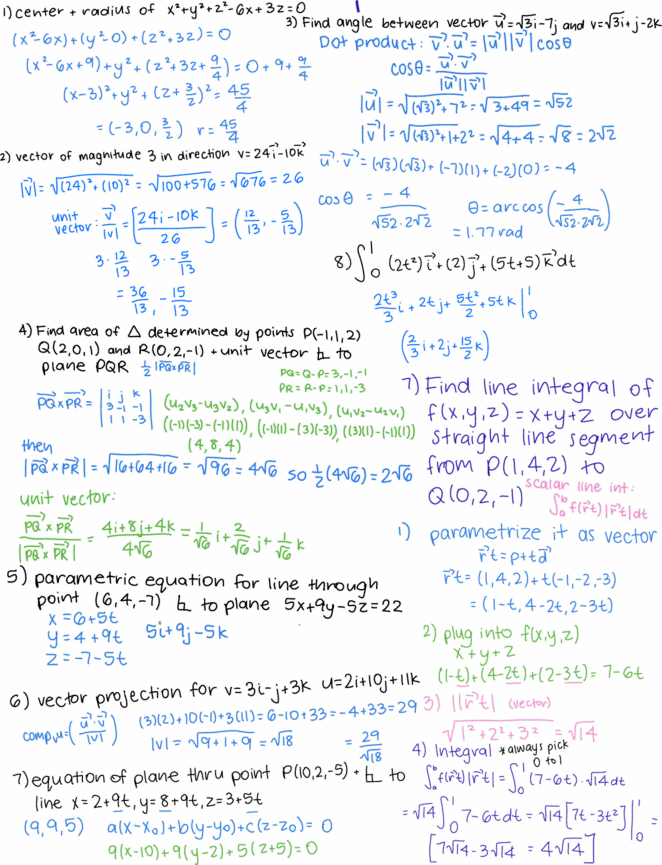 1) center + radius of x²+y²+z²-6x+3z=0
(x²-6x)+(y²-0)+(z²+3z)=0
(x²-6x+9)+y²+(z²+3z+9/4)=0+9+9/4
(x-3)²+y²+(z+3/2)²=45/4
=(-3,0,3/2) r=45/4
2) vector of magnitude 3 in direction v=24i-10k
|v|=√(24)²+(10)²=√100+576=√676=26
unit vector: v/|v|=[24i-10k/26]=(12/13,-5/13)
3·12/13 3·-5/13
=36/13,-15/13
3) Find angle between vector u=√3i-7j and v=√3i+j-2k
Dot product: v·u=|u||v|cosθ
cosθ=u·v/|u||v|
|u|=√(√3)²+7²=√3+49=√52
|v|=√(√3)²+1+2²=√4+4=√8=2√2
u·v=(√3)(√3)+(-7)(1)+(-2)(0)=-4
cosθ=-4/√52·2√2 θ=arccos(-4/√52·2√2)
=1.77rad
8) ∫₀¹(2t²)i+(2)j+(5t+5)k dt
2t³/3 i+2tj+5t²/2+5tk|₀¹
(2/3 i+2j+15/2 k)
4) Find area of △ determined by points P(-1,1,2)
Q(2,0,1) and R(0,2,-1) + unit vector ⊥ to
plane PQR ½|PQ×PR|
PQ=Q-P=3,-1,-1
PR=R-P=1,1,-3
PQ×PR=
|i j k|
|3 -1 -1|
|1 1 -3|
(u₂v₃-u₃v₂),(u₃v₁-u₁v₃),(u₁v₂-u₂v₁)
((-1)(-3)-(-1)(1)),((-1)(1)-(3)(-3)),((3)(1)-(-1)(1))
(4,8,4)
then
|PQ×PR|=√16+64+16=√96=4√6 so ½(4√6)=2√6
unit vector:
PQ×PR/|PQ×PR|=4i+8j+4k/4√6=1/√6 i+2/√6 j+1/√6 k
5) parametric equation for line through
point (6,4,-7) ⊥ to plane 5x+9y-5z=22
x=6+5t
y=4+9t 5i+9j-5k
z=-7-5t
6) vector projection for v=3i-j+3k u=2i+10j+11k
compᵥu=(u·v/|v|) (3)(2)+10(-1)+3(11)=6-10+33=-4+33=29
|v|=√9+1+9=√18 =29/√18
7) equation of plane thru point P(10,2,-5) + ⊥ to
line x=2+9t, y=8+9t, z=3+5t
(9,9,5) a(x-x₀)+b(y-y₀)+c(z-z₀)=0
9(x-10)+9(y-2)+5(z+5)=0
7) Find line integral of
f(x,y,z)=x+y+z over
straight line segment
from P(1,4,2) to
Q(0,2,-1) scalar line int:
∫ₐᵇf(rt)|rt|dt
1) parametrize it as vector
rt=p+td
rt=(1,4,2)+t(-1,-2,-3)
=(1-t,4-2t,2-3t)
2) plug into f(x,y,z)
x+y+z
(1-t)+(4-2t)+(2-3t)=7-6t
3) ||rt| (vector)
√1²+2²+3²=√14
4) Integral *always pick
0 to 1
∫ₐᵇf(rt)|rt|=∫₀¹(7-6t)·√14dt
=√14∫₀¹7-6tdt=√14[7t-3t²]|₀¹=
[7√14-3√14=4√14]